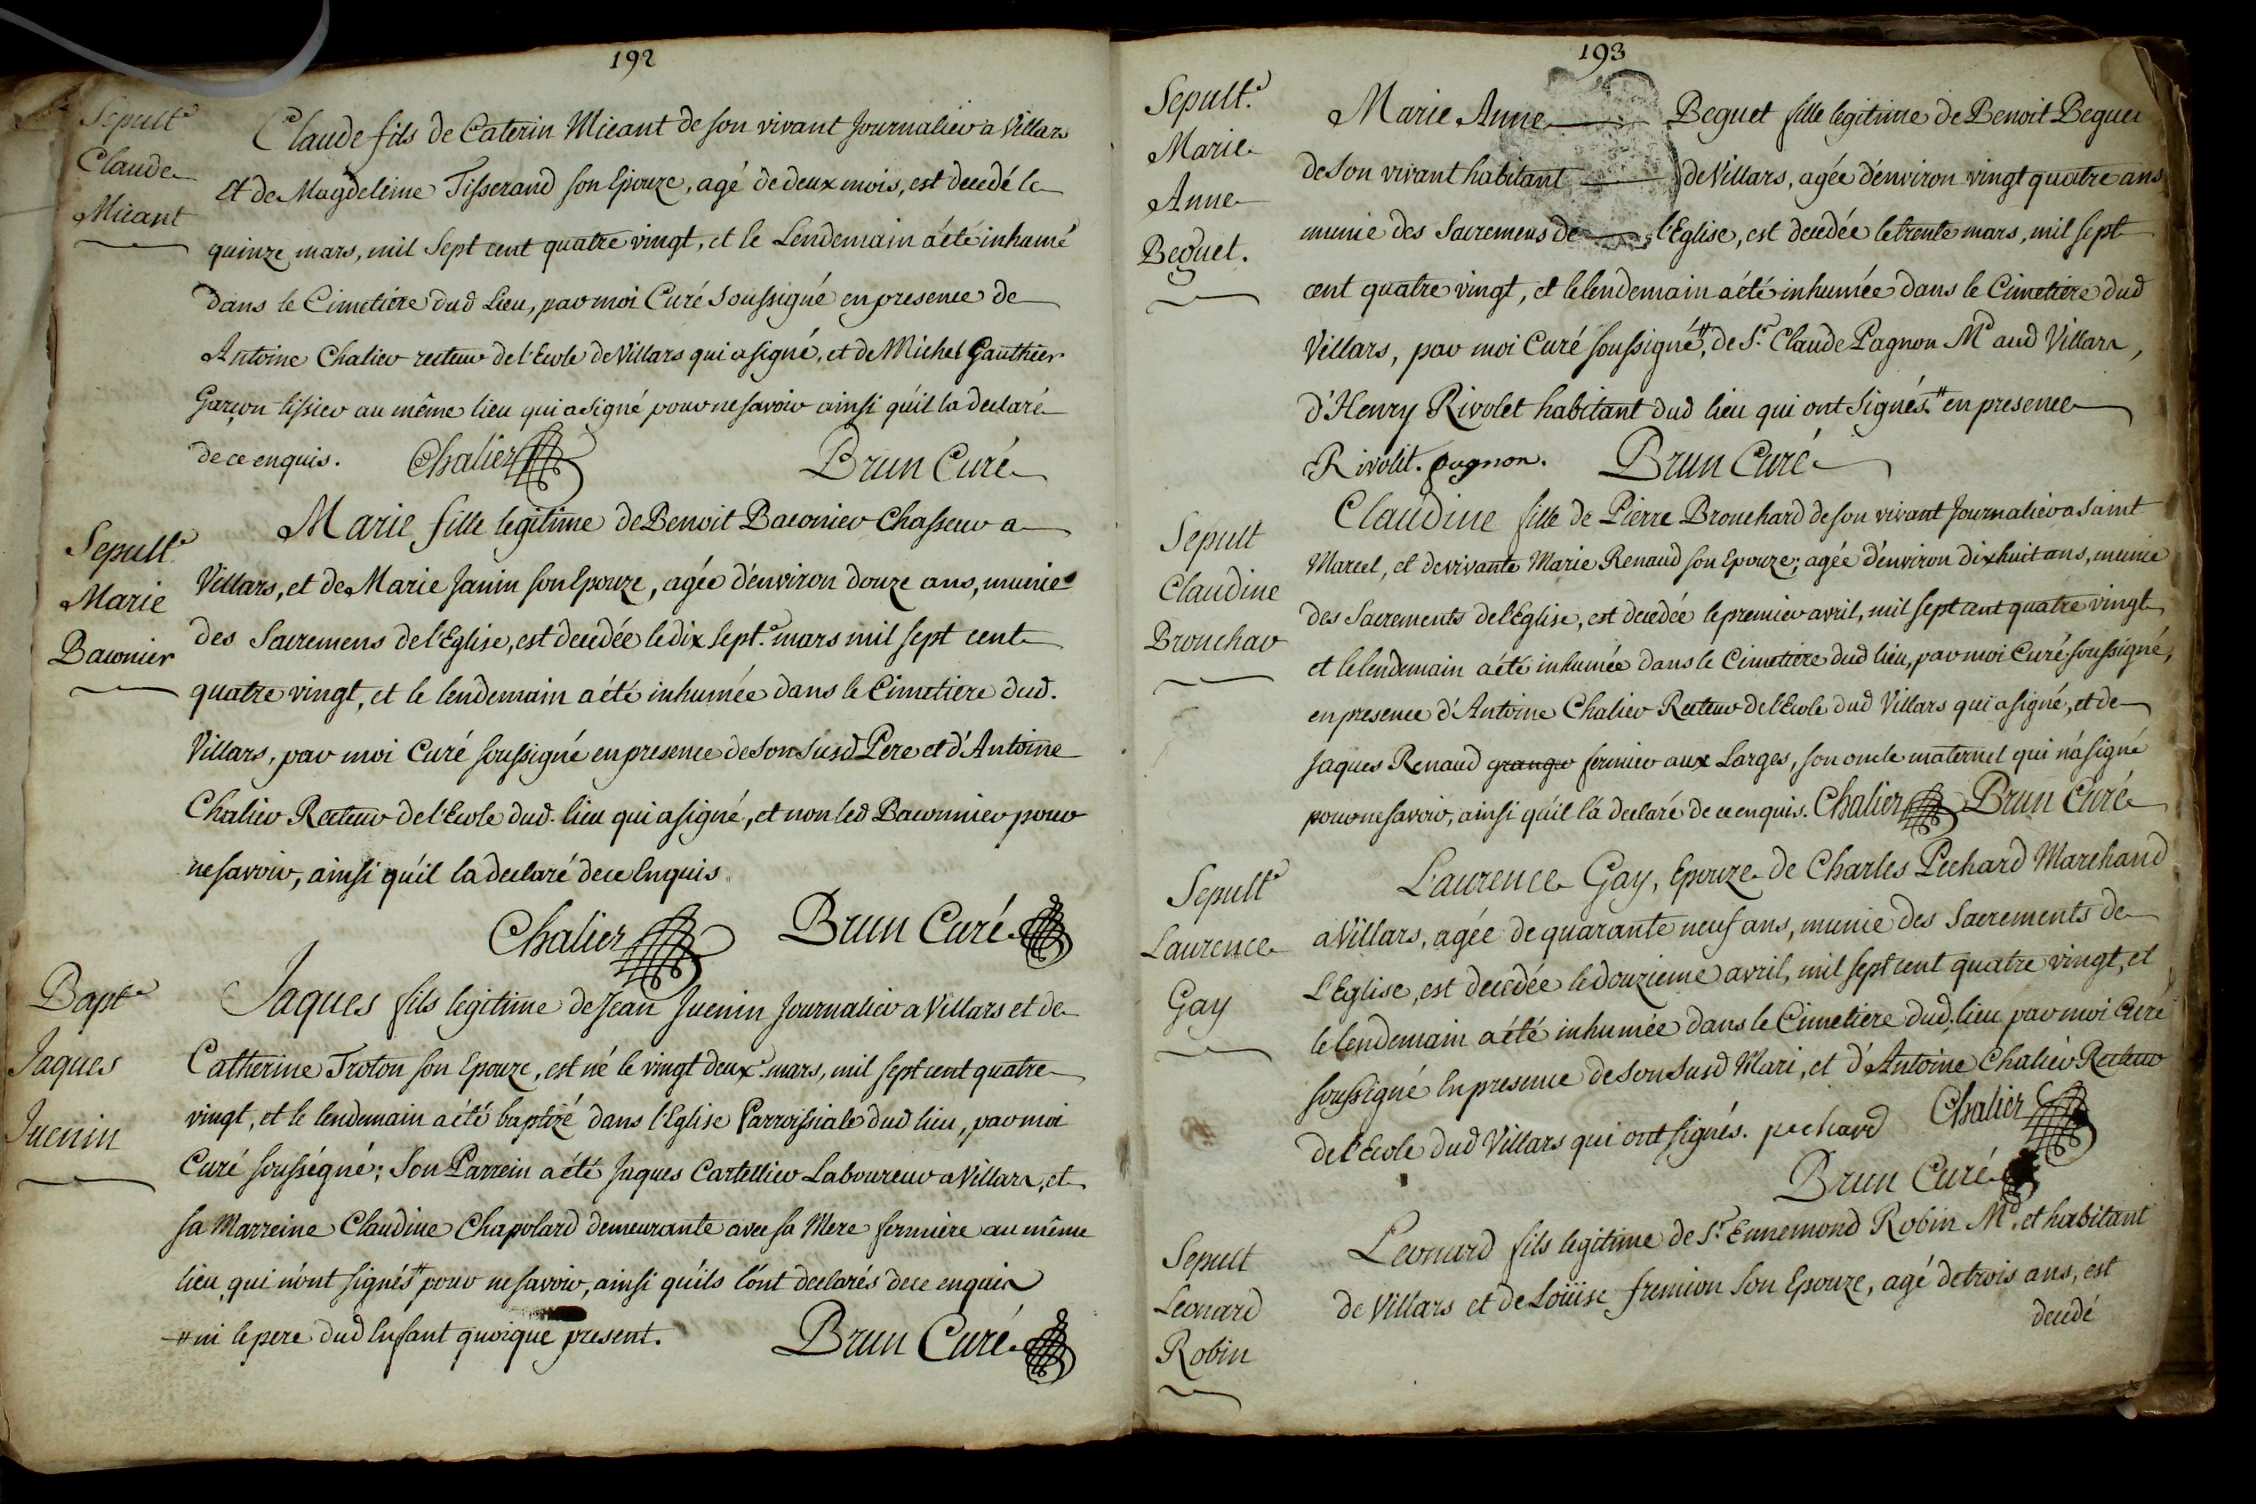 192
Sepult.e
Claude
Micant
Claude fils de Caterin Micant de son vivant Journalier a Villars
Et de Magdeleine Tisserand son Epouze, agé de deux mois, est decedé le
quinze mars, mil sept cent quatre vingt, et le Lendemain a été inhumé
dans le Cimetiere dud Lieu, par moi Curé Soussigné en presence de
Antoine Chalier recteur de l'Ecole de Villars qui a signé, et de Michel Gauthier
Garçon tissier au même lieu qui a signé pour ne savoir ainsi qu'il la declaré
de ce enquis. Chalier Brun Curé
Sepult.e
Marie
Baconier
Marie fille legitime de Benoit Baconier Chasseur a
Villars, et de Marie Janin son Epouze, agée d'environ douze ans, munie
des Sacremens de l'Eglise, est decedée le dix sept.e mars mil sept cent
quatre vingt, et le lendemain a été inhumée dans le Cimetiere dud.
Villars, par moi Curé soussigné en presence de son susd Pere et d'Antoine
Chalier Recteur de l'Ecole dud. lieu qui a signé, et non led Baconnier pour
ne savoir, ainsi qu'il la declaré de ce Enquis.
Chalier Brun Curé
Bapt.e
Jaques
Juenin
Jaques fils legitime de Jean Juenin Journalier a Villars et de
Catherine Troton son Epouze, est né le vingt deux.e mars, mil sept cent quatre
vingt, et le lendemain a été baptizé dans l'Eglise Parroissiale dud lieu, par moi
Curé sousségné; Son Parrein a été Jaques Cartellier Laboureur a Villars, et
sa Marreine Claudine Chapolard demeurante avec sa Mere fermiere au même
lieu, qui n'ont signés # pour ne savoir, ainsi qu'ils l'ont declarés de ce enquis
# ni le pere dud Enfant quoique present. Brun Curé
193
Sepult.e
Marie
Anne
Beguet.
Marie Anne Beguet fille legitime de Benoit Beguet
de son vivant habitant de Villars, agée d'environ vingt quatre ans
munie des Sacremens de l'Eglise, est decedée le trente mars, mil sept
cent quatre vingt, et le lendemain a été inhumée dans le Cimetiere dud
Villars, par moi Curé soussigné, # de S.r Claude Pagnon Md aud Villars,
d'Henry Rivolet habitant dud lieu qui ont Signés. # en presence
Rivolit. pagnon. Brun Curé
Sepult
Claudine
Brouchar
Claudine fille de Pierre Brouchard de son vivant Journalier a Saint
Marcel, et de vivante Marie Renaud son Epouze; agée d'environ dix huit ans, munie
des Sacrements de l'Eglise, est decedée le premier avril, mil sept cent quatre vingt
et le lendemain a été inhumée dans le Cimetiere dud lieu, par moi Curé soussigné,
en presence d'Antoine Chalier Recteur de l'Ecole dud Villars qui a signé, et de
Jaques Renaud granger fermier aux Larges, son oncle maternel qui n'a signé
pour ne savoir, ainsi qu'il l'a declaré de ce enquis. Chalier Brun Curé
Sepult.e
Laurence
Gay
Laurence Gay, Epouze de Charles Pechard Marchand
a Villars, agée de quarante neuf ans, munie des Sacrements de
L'Eglise, est decedée le douzieme avril, mil sept cent quatre vingt, et
le lendemain a été inhumée dans le Cimetiere dud. lieu par moi Curé
soussigné En presence de son susd Mari, et d'Antoine Chalier Recteur
de l'Ecole dud Villars qui ont signés. pechard Chalier
Brun Curé
Sepult
Leonard
Robin
Leonard fils legitime de S.r Ennemond Robin Md. et habitant
de Villars et de Loüise fremion son Epouze, agé de trois ans, est
decedé